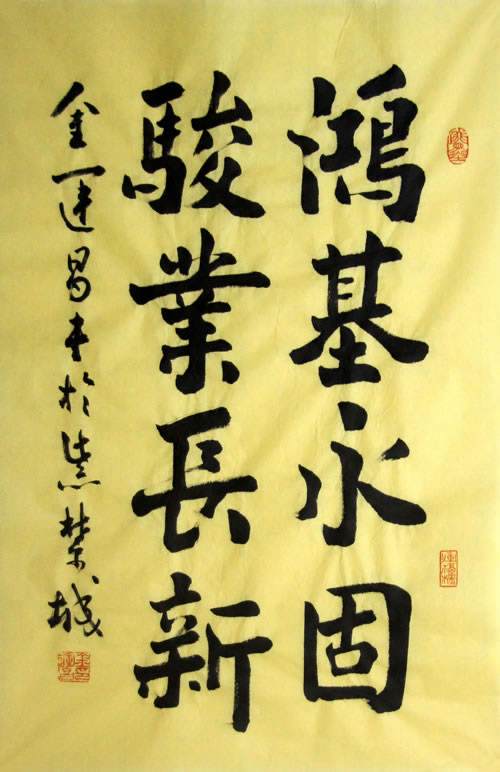 鴻基永固
駿業長新
金運昌書於紫禁城